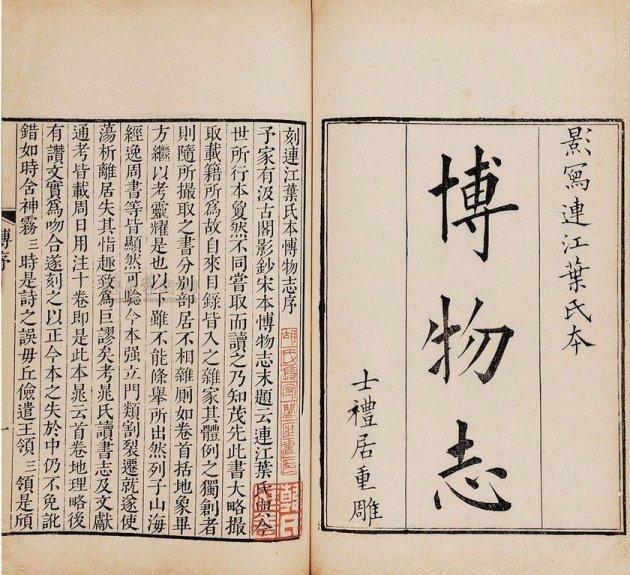 影寫連江葉氏本
博物志
士禮居重雕
刻連江葉氏本博物志序
予家有汲古閣影鈔宋本博物志末題云連江葉氏與今
世所行本敻然不同嘗取而讀之乃知茂先此書大略撮
取載籍所爲故自來目錄皆入之雜家其體例之獨創者
則隨所撮取之書分別部居不相雜厠如卷首括地象畢
方繼以考靈耀是也以下雖不能條舉所出然列子山海
經逸周書等皆顯然可驗今本强立門類割裂遷就遂使
蕩析離居失其恉趣致爲巨謬矣考晁氏讀書志及文獻
通考皆載周日用注十卷即是此本晁云首卷地理略後
有讚文實爲吻合遂刻之以正今本之失於中仍不免訛
錯如時舍神霧三時是詩之誤毋丘儉遣王領三領是頎
博序
一